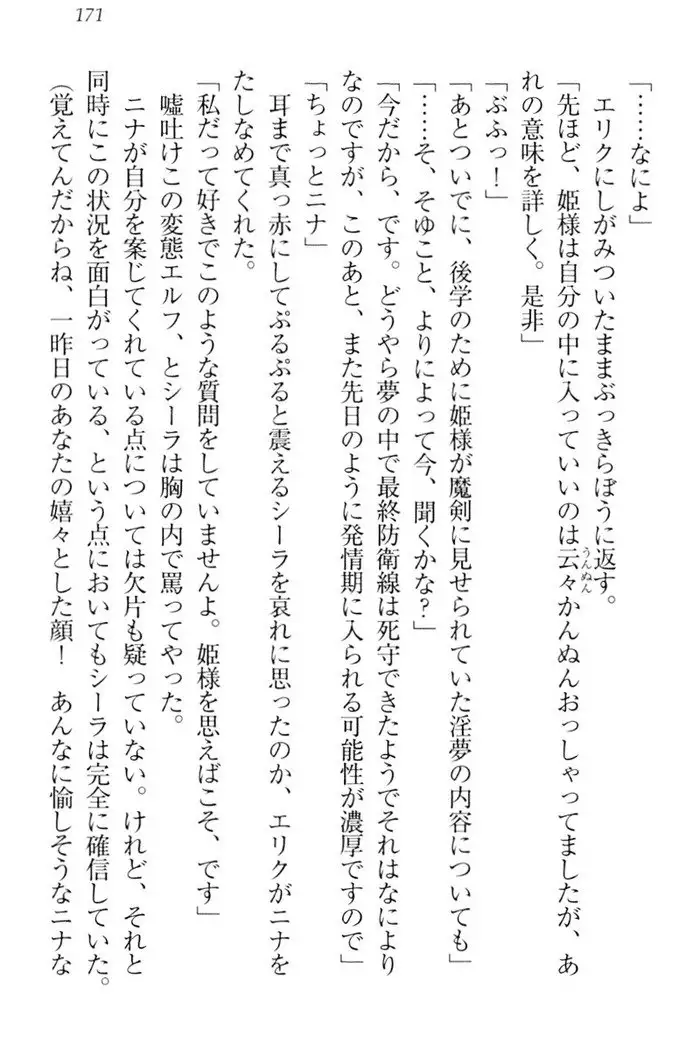 171
「……なによ」
　エリクにしがみついたままぶっきらぼうに返す。
「先ほど、姫様は自分の中に入っていいのは云々かんぬんおっしゃってましたが、あ
うんぬん
れの意味を詳しく。是非」
「ぶふっ！」
「あとついでに、後学のために姫様が魔剣に見せられていた淫夢の内容についても」
「……そ、そゆこと、よりによって今、聞くかな？」
「今だから、です。どうやら夢の中で最終防衛線は死守できたようでそれはなにより
なのですが、このあと、また先日のように発情期に入られる可能性が濃厚ですので」
「ちょっとニナ」
　耳まで真っ赤にしてぷるぷると震えるシーラを哀れに思ったのか、エリクがニナを
たしなめてくれた。
「私だって好きでこのような質問をしていませんよ。姫様を思えばこそ、です」
　嘘吐けこの変態エルフ、とシーラは胸の内で罵ってやった。
　ニナが自分を案じてくれている点については欠片も疑っていない。けれど、それと
同時にこの状況を面白がっている、という点においてもシーラは完全に確信していた。
（覚えてんだからね、一昨日のあなたの嬉々とした顔！　あんなに愉しそうなニナな